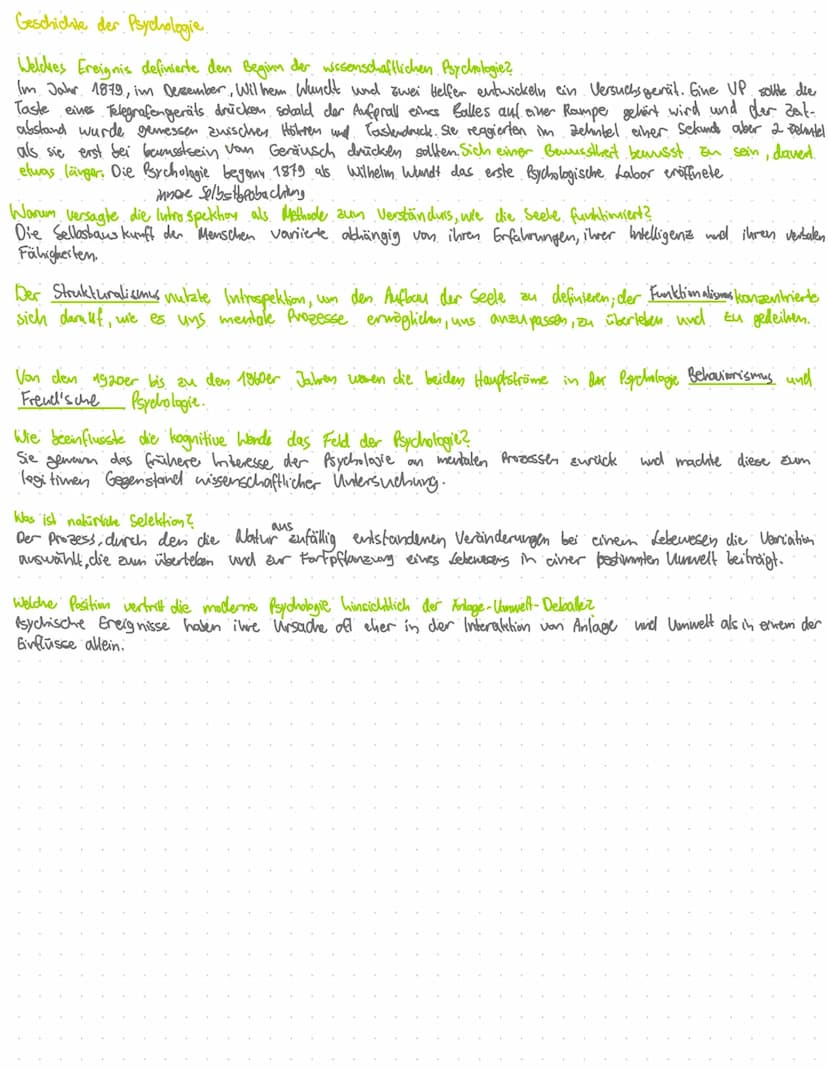 Geschichte der Psychologie
Welches Ereignis definierte den Beginn der wissenschaftlichen Psychologie?
Im Jahr 1879, im Dezember, Wilhem Wundt und zwei Helfer entwickeln ein Versuchsgerät. Eine VP sollte die
Taste eines Telegrafengeräts drücken sobald der Aufprall eines Balles auf einer Rampe gehört wird und der Zeit-
abstand wurde gemessen zwischen Hören und Tastendruck. Sie reagierten im zehntel einer Sekunde aber 2 Zehntel
als sie erst bei bewusstsein vom Geräusch drücken sollten. Sich einer Bewusstheit bewusst zu sein, dauert
etwas länger. Die Psychologie begann 1879 als Wilhelm Wundt das erste Psychologische Labor eröffnete
innere Selbstbeobachtung
Warum versagte die Introspektion als Methode zum Verständnis, wie die Seele funktioniert?
Die Selbstauskunft der Menschen variierte abhängig von ihren Erfahrungen, ihrer Intelligenz und ihren verbalen
Fähigkeiten.
Der Strukturalismus nutzte Introspektion, um den Aufbau der Seele zu definieren; der Funktionalismus konzentrierte
sich darauf, wie es uns mentale Prozesse ermöglichen, uns anzupassen, zu überleben und zu gedeihen.
Von den 1920er bis zu den 1960er Jahren waren die beiden Hauptströme in der Psychologie Behaviorismus und
Freud'sche Psychologie.
Wie beeinflusste die kognitive Wende das Feld der Psychologie?
Sie gewann das frühere Interesse der Psychologie an mentalen Prozessen zurück und machte diese zum
legitimen Gegenstand wissenschaftlicher Untersuchung.
Was ist natürliche Selektion?
Der Prozess, durch den die Natur aus zufällig entstandenen Veränderungen bei einem Lebewesen die Variation
auswählt, die zum überleben und zur Fortpflanzung eines Lebewesens in einer bestimmten Umwelt beiträgt.
Welche Position vertritt die moderne Psychologie hinsichtlich der Anlage-Umwelt-Debatte?
Psychische Ereignisse haben ihre Ursache oft eher in der Interaktion von Anlage und Umwelt als in einem der
Einflüsse allein.